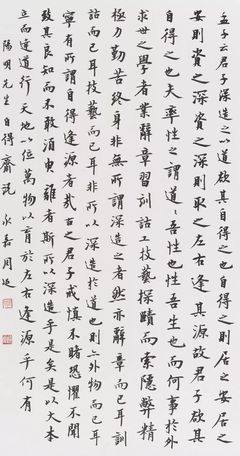 孟子云君子深造之以道欲其自得之也自得之則居之安居之
安則資之深資之深則取之左右逢其源故君子欲其
自得之也夫率性之謂道〻吾性也性吾生也而何事於外
求世之學者業辭章習訓詁工技藝探賾而索隱弊精
極力勤苦終身非無所謂深造之者然亦辭章而已耳訓
詁而已耳技藝而已耳非所以深造於道也則亦外物而已耳
寧有所謂自得逢源者哉古之君子戒慎不睹恐懼不聞
致其良知而不敢須臾離者斯所以深造乎是矣是以大本
立而達道行天地以位萬物以育於左右逢源乎何有
陽明先生自得齋說 永嘉周